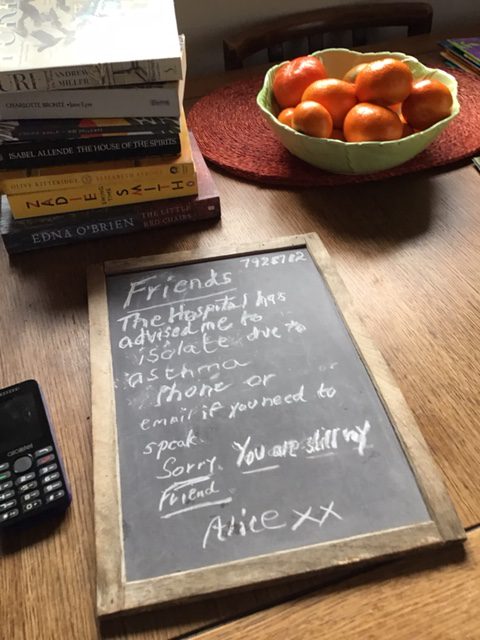 URE
ANDREW
MILLER
CHARLOTTE BRONTË • Jane Eyre
ISABEL ALLENDE THE HOUSE OF THE SPIRITS
OLIVE KITTERIDGE ELIZABETH STROUT
ZADIE SMITH
EDNA O'BRIEN THE LITTLE
RED CHAIRS
alcatel
Friends 7928782
The Hospital has
advised me to
isolate due to
asthma
Phone or
email if you need to
speak
Sorry. You are still my
Friend
Alice xx